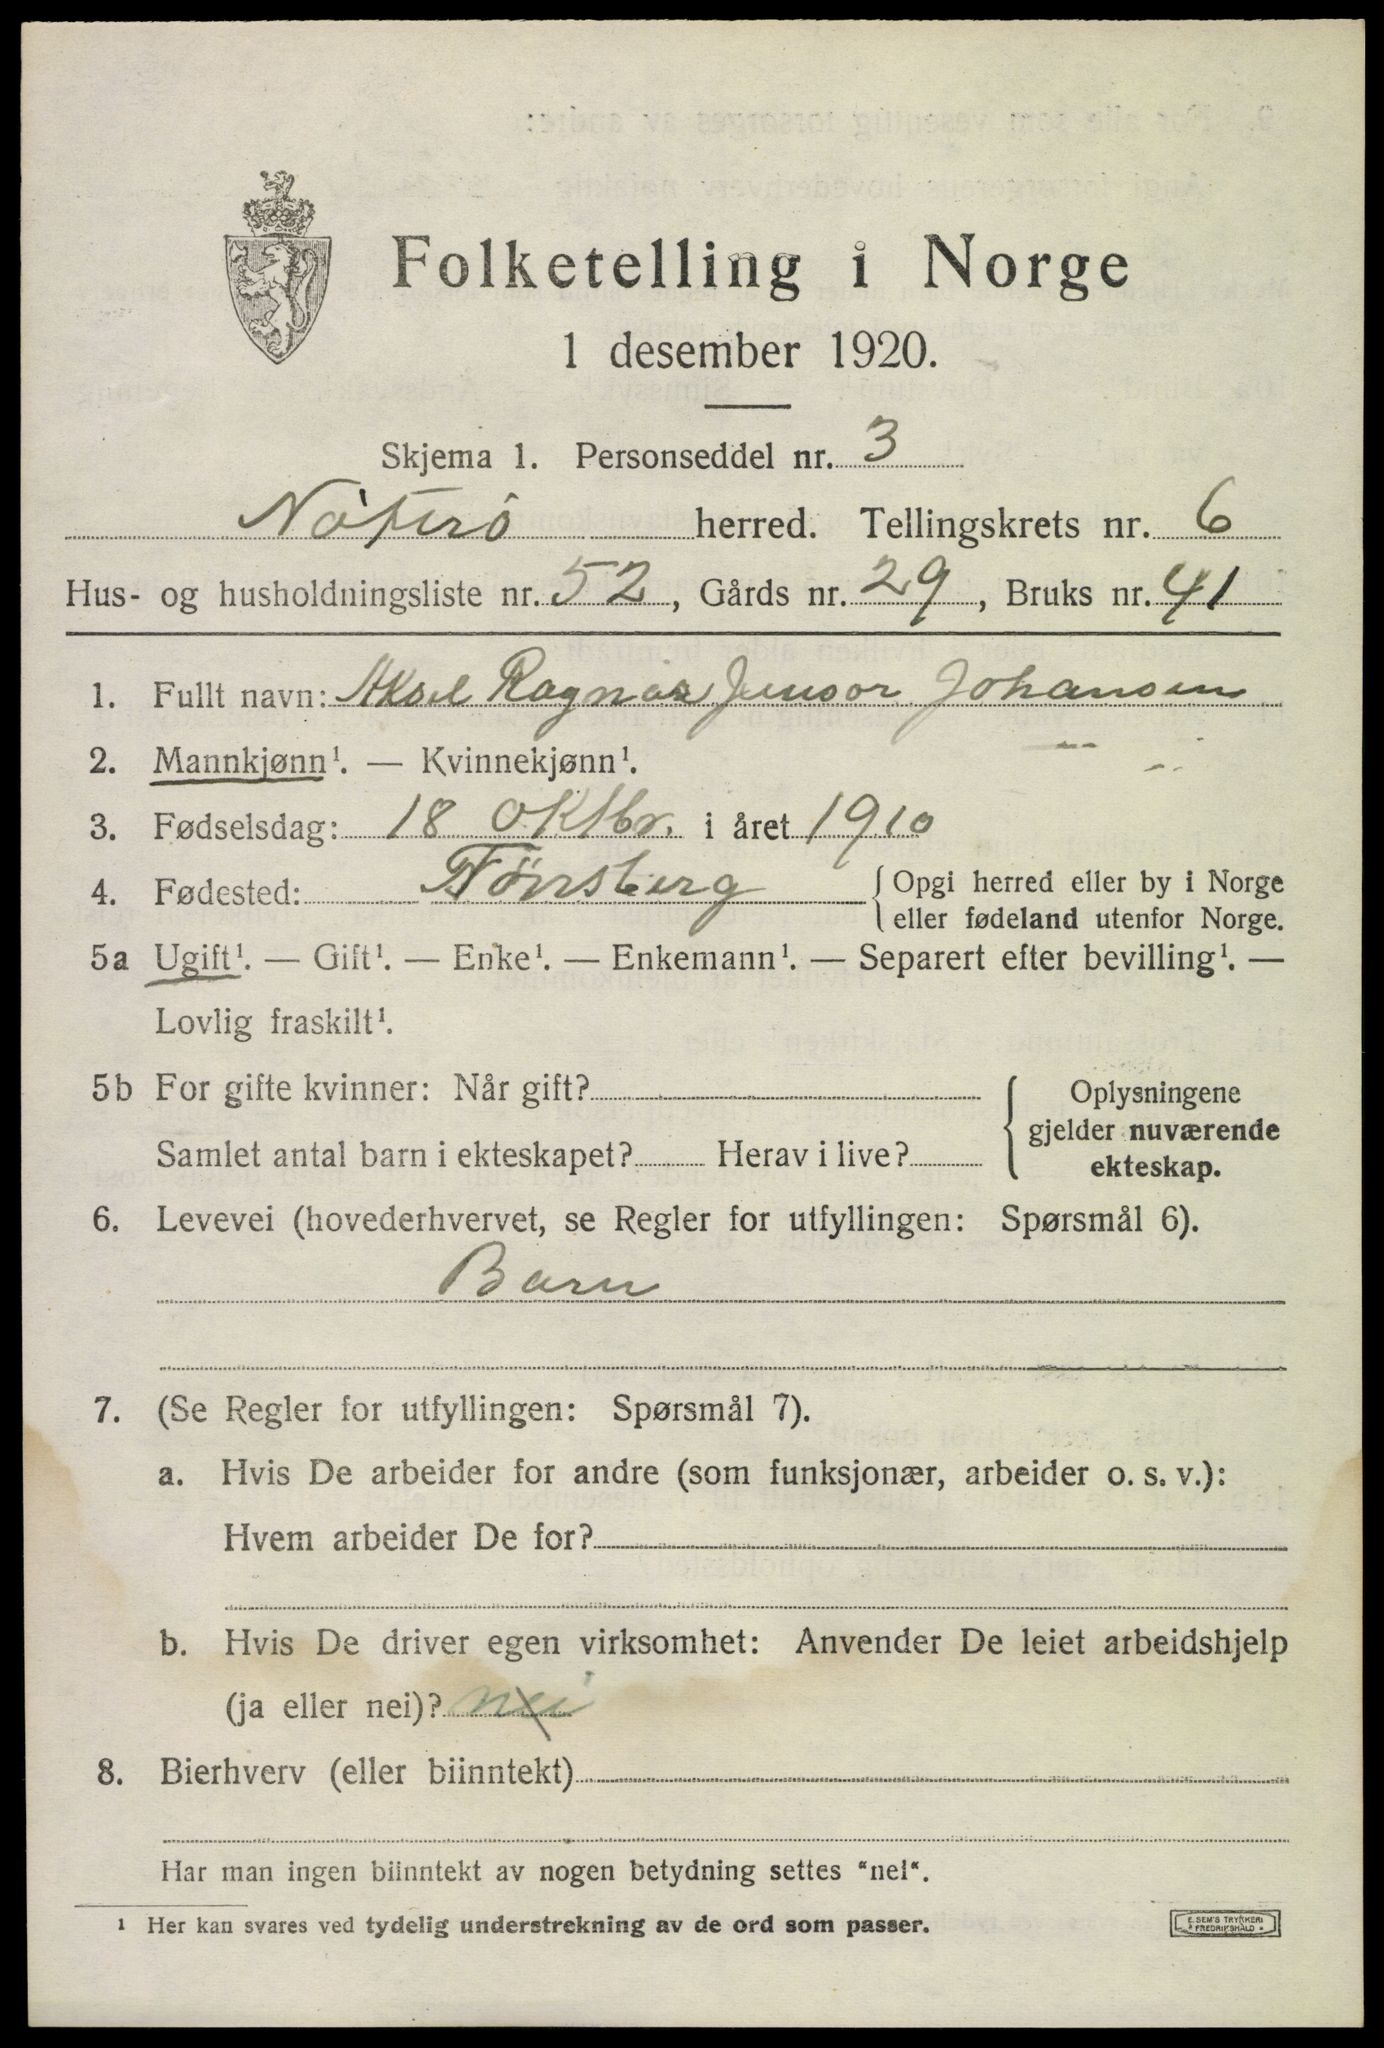 Folketelling i Norge
1 desember 1920.
Skjema 1. Personseddel nr. 3
Nøterö herred. Tellingskrets nr. 6
Hus- og husholdningsliste nr. 52, Gårds nr. 29, Bruks nr. 41
1. Fullt navn: Aksel Ragnar Junior Johansen
2. Mannkjønn¹. — Kvinnekjønn¹.
3. Fødselsdag: 18 oktbr. i året 1910
4. Fødested: Tönsberg { Opgi herred eller by i Norge
eller fødeland utenfor Norge.
5a Ugift¹. — Gift¹. — Enke¹. — Enkemann¹. — Separert efter bevilling¹. —
Lovlig fraskilt¹.
5b For gifte kvinner: Når gift?
Samlet antal barn i ekteskapet? Herav i live?
Oplysningene
gjelder nuværende
ekteskap.
6. Levevei (hovederhvervet, se Regler for utfyllingen: Spørsmål 6).
Barn
7. (Se Regler for utfyllingen: Spørsmål 7).
a. Hvis De arbeider for andre (som funksjonær, arbeider o. s. v.):
Hvem arbeider De for?
b. Hvis De driver egen virksomhet: Anvender De leiet arbeidshjelp
(ja eller nei)? nei
8. Bierhverv (eller biinntekt)
Har man ingen biinntekt av nogen betydning settes "nei".
¹ Her kan svares ved tydelig understrekning av de ord som passer.
E. SEM'S TRYKKERI
* FREDRIKSHALD *